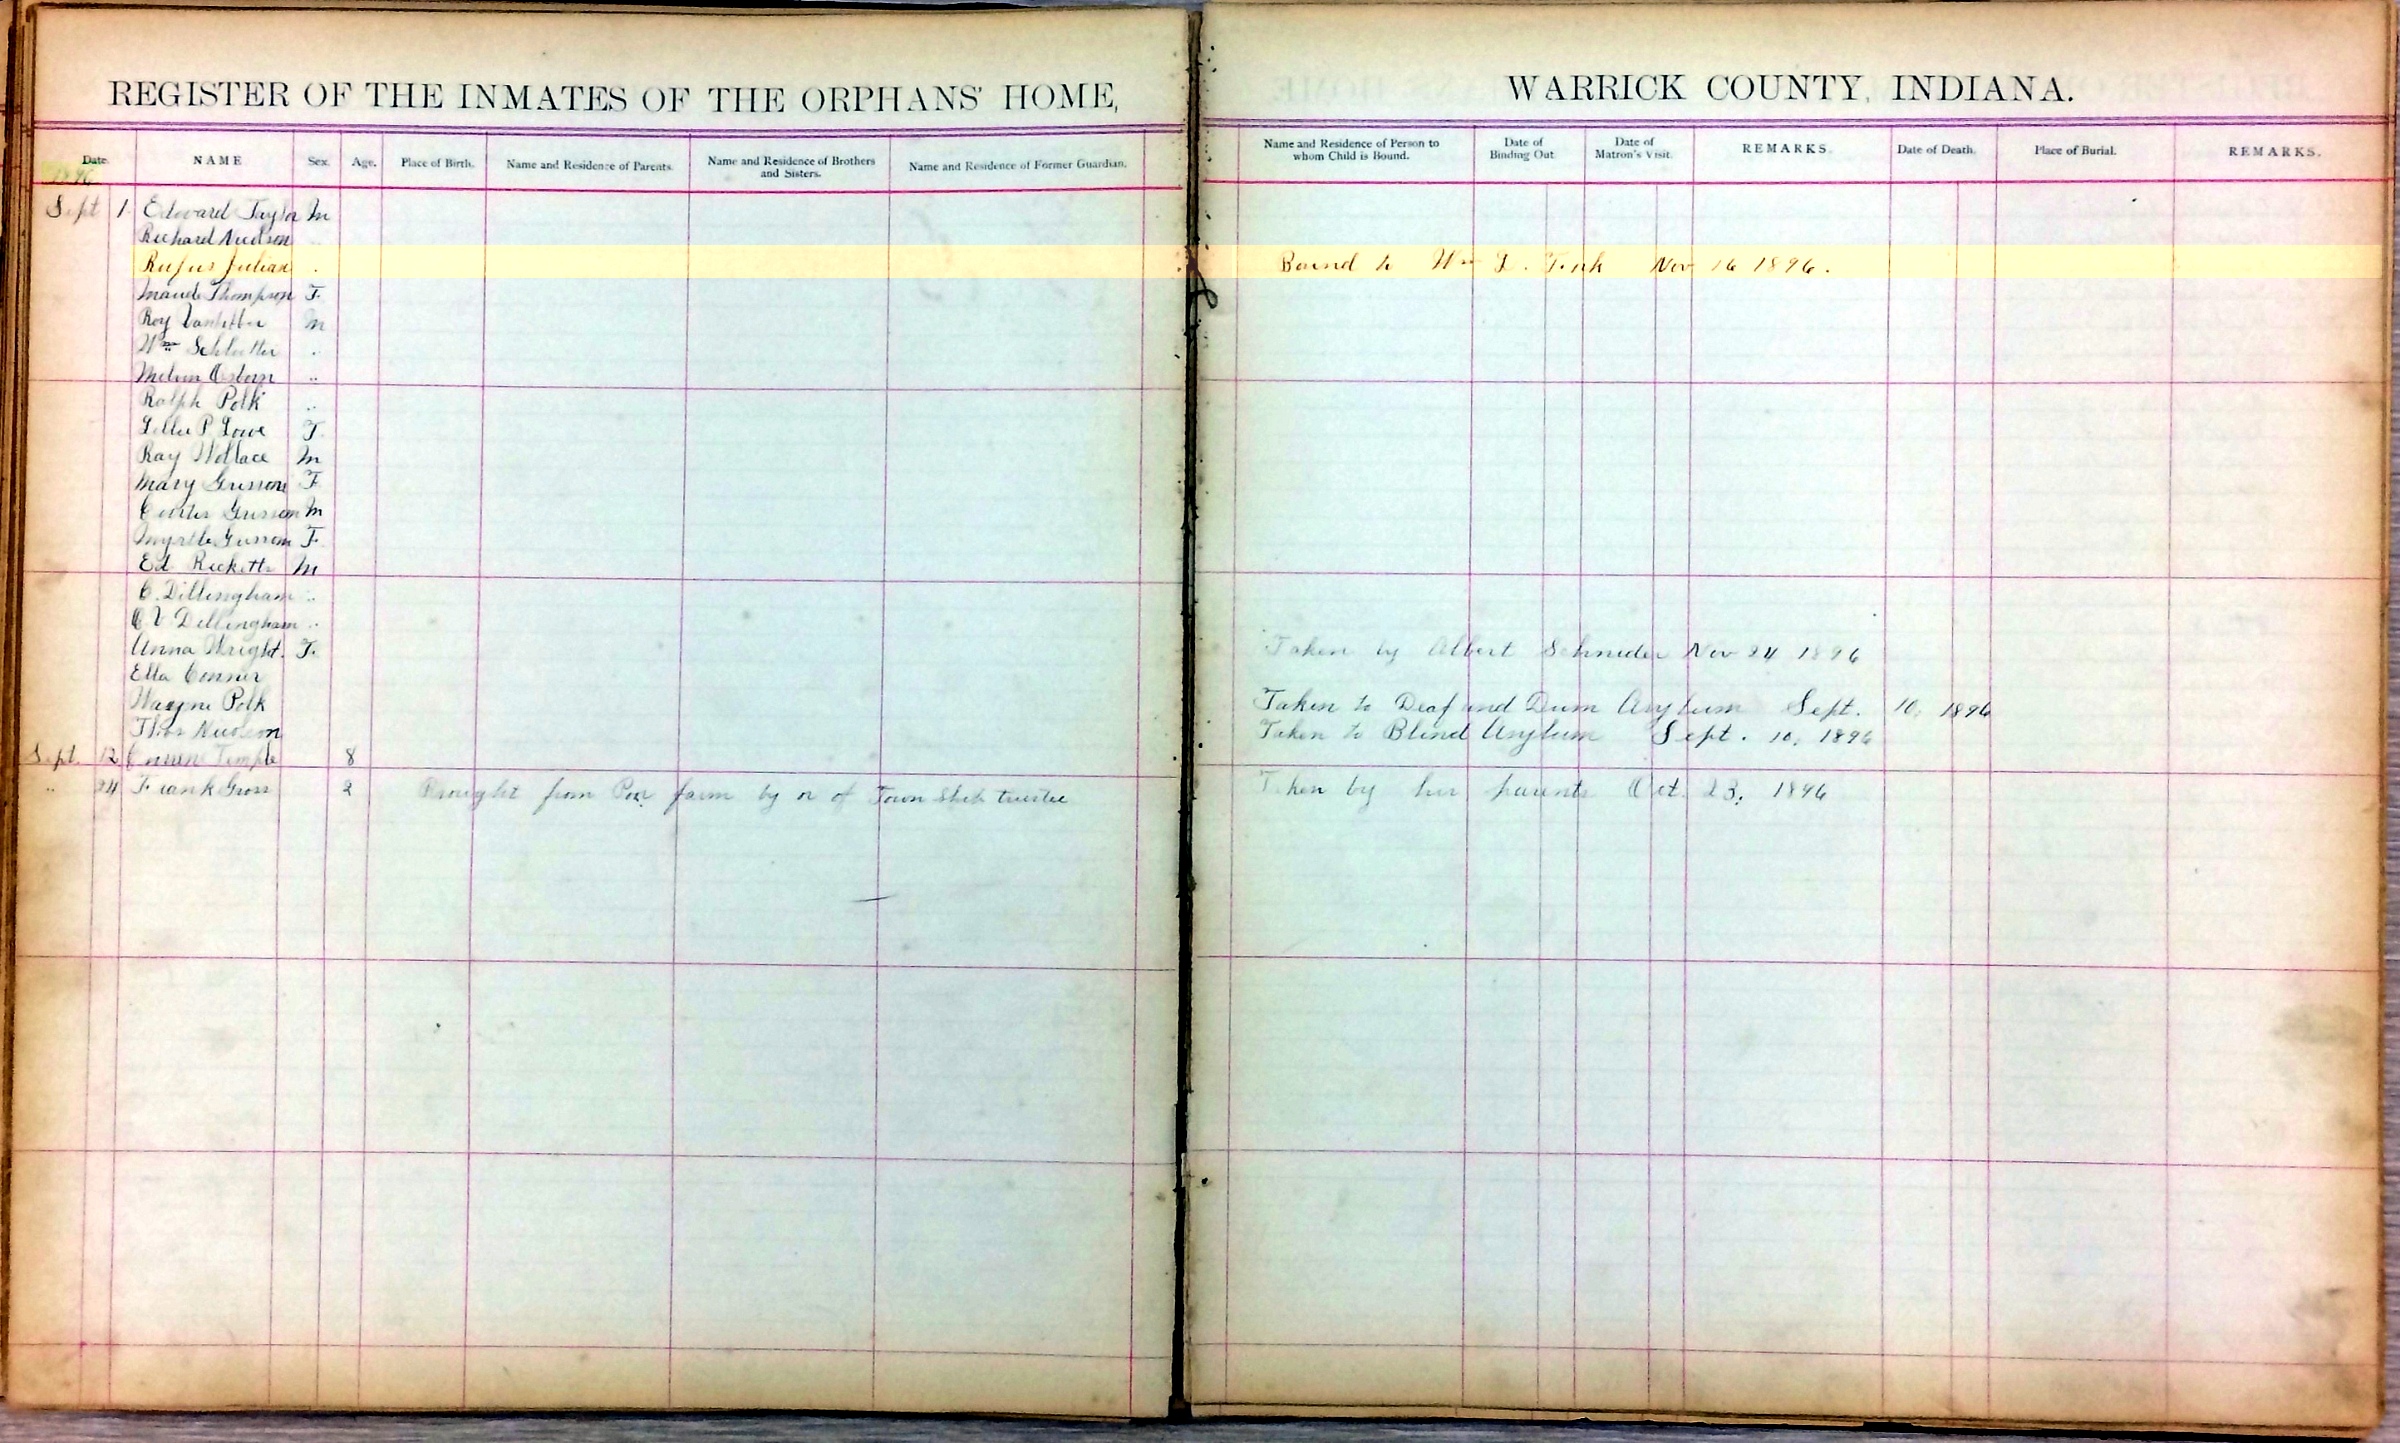 REGISTER OF THE INMATES OF THE ORPHANS' HOME,
Date. NAME Sex. Age. Place of Birth. Name and Residence of Parents. Name and Residence of Brothers and Sisters. Name and Residence of Former Guardian.
1896
Sept 1 Edward Taylor M
Richard Nudson ..
Rufus Julian .
Maude Thompson F.
Roy M
Wm ..
Melvin Osborn ..
Ralph Polk ..
P Lowe F.
Ray Wallace M
Mary Grissom F
Curtis Grissom M
Myrtle Grissom F.
Ed Ricketts M
C. Dillingham ..
C V Dillingham ..
Anna Wright. F.
Ella Conner
Wayne Polk
Thos Nudson
Sept. 12 Temple 8
.. 24 Frank Gross 2 Brought from Poor farm by or of Town Ship trustee
WARRICK COUNTY, INDIANA.
Name and Residence of Person to whom Child is Bound. Date of Binding Out. Date of Matron's Visit. REMARKS. Date of Death. Place of Burial. REMARKS.
Bound to Wm L. Nov 16 1896.
Taken by Albert Schnider Nov 24 1896
Taken to Deaf and Dum Asylum Sept. 10, 1896
Taken to Blind Asylum Sept. 10, 1896
Taken by her parents Oct. 23, 1896